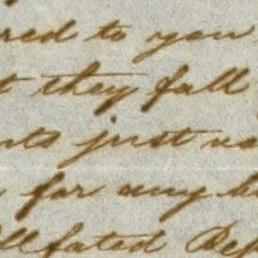 red to you
t they fall
nts just
for any
Illfated